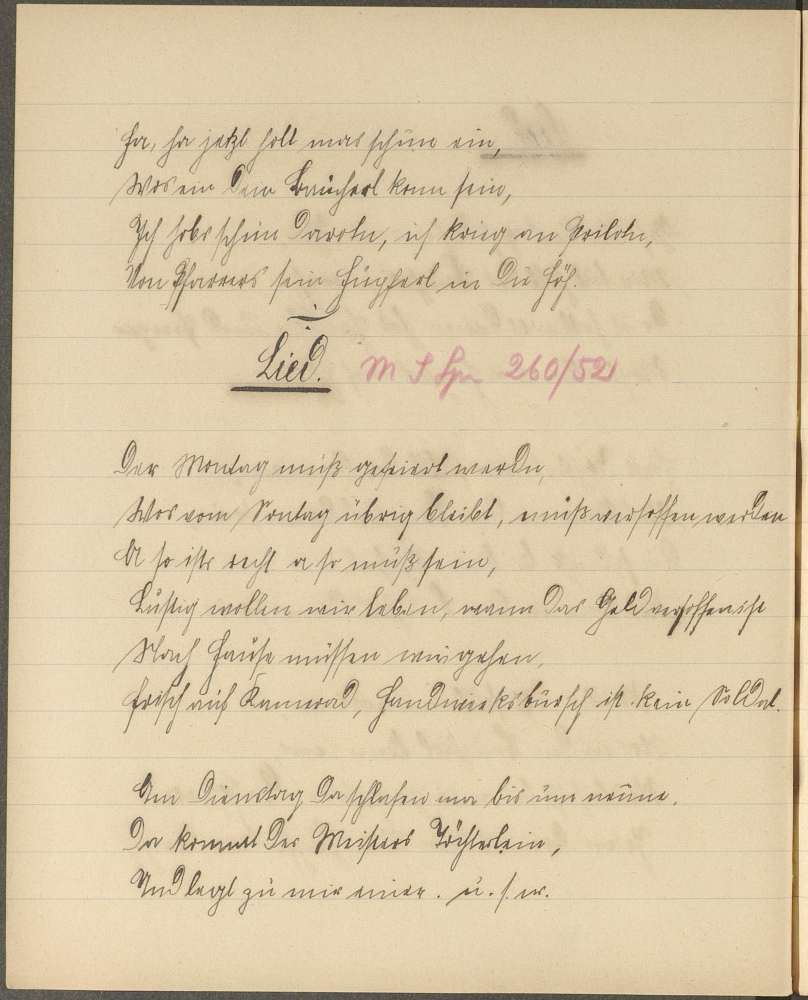 Ha, ha jetzt holt mas schöne ein,
Was ein dem Bäucherl konn sein,
Ich hobs schön daroln, ich krieg an
Von Pfarrers sein Hüpferl in die Höh.
Lied. M S Spr 260/52
Der Montag muß gefeiert werdn,
Was vom Sontag übrig bleibt, muß versoffen werden
A so ists recht a so muß sein,
Lustig wollen wir leben, wann das Geld versoffen ist
Nach Hause müssen wir gehen,
frisch auf Kamerad, Handwerksbursch ist kein Soldat.
Am Dienstag da schlafen ma bis um neune.
Da kommt des Meisters Töchterlein,
Und legt zu mir einer. u. s. w.